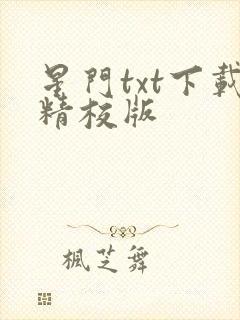 星門txt下載
精校版
楓芝舞